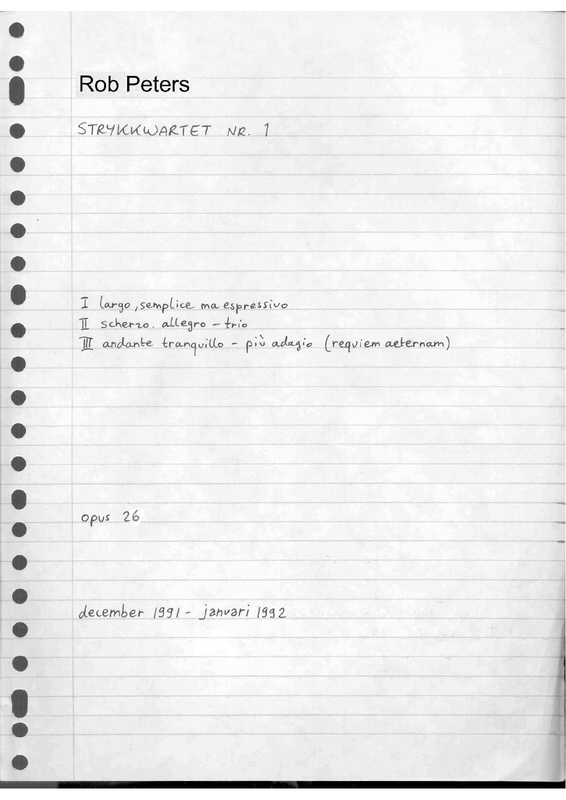 Rob Peters
STRYKKWARTET NR. 1
I largo, semplice ma espressivo
II scherzo. allegro - trio
III andante tranquillo - più adagio (requiem aeternam)
opus 26
december 1991 - januari 1992